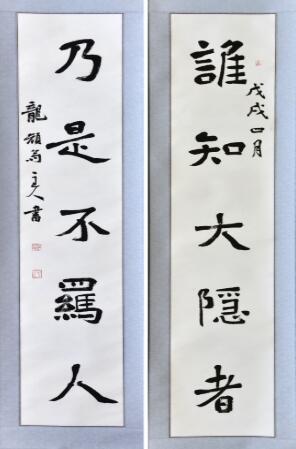 誰知大隱者
戊戌四月
乃是不羈人
主人書